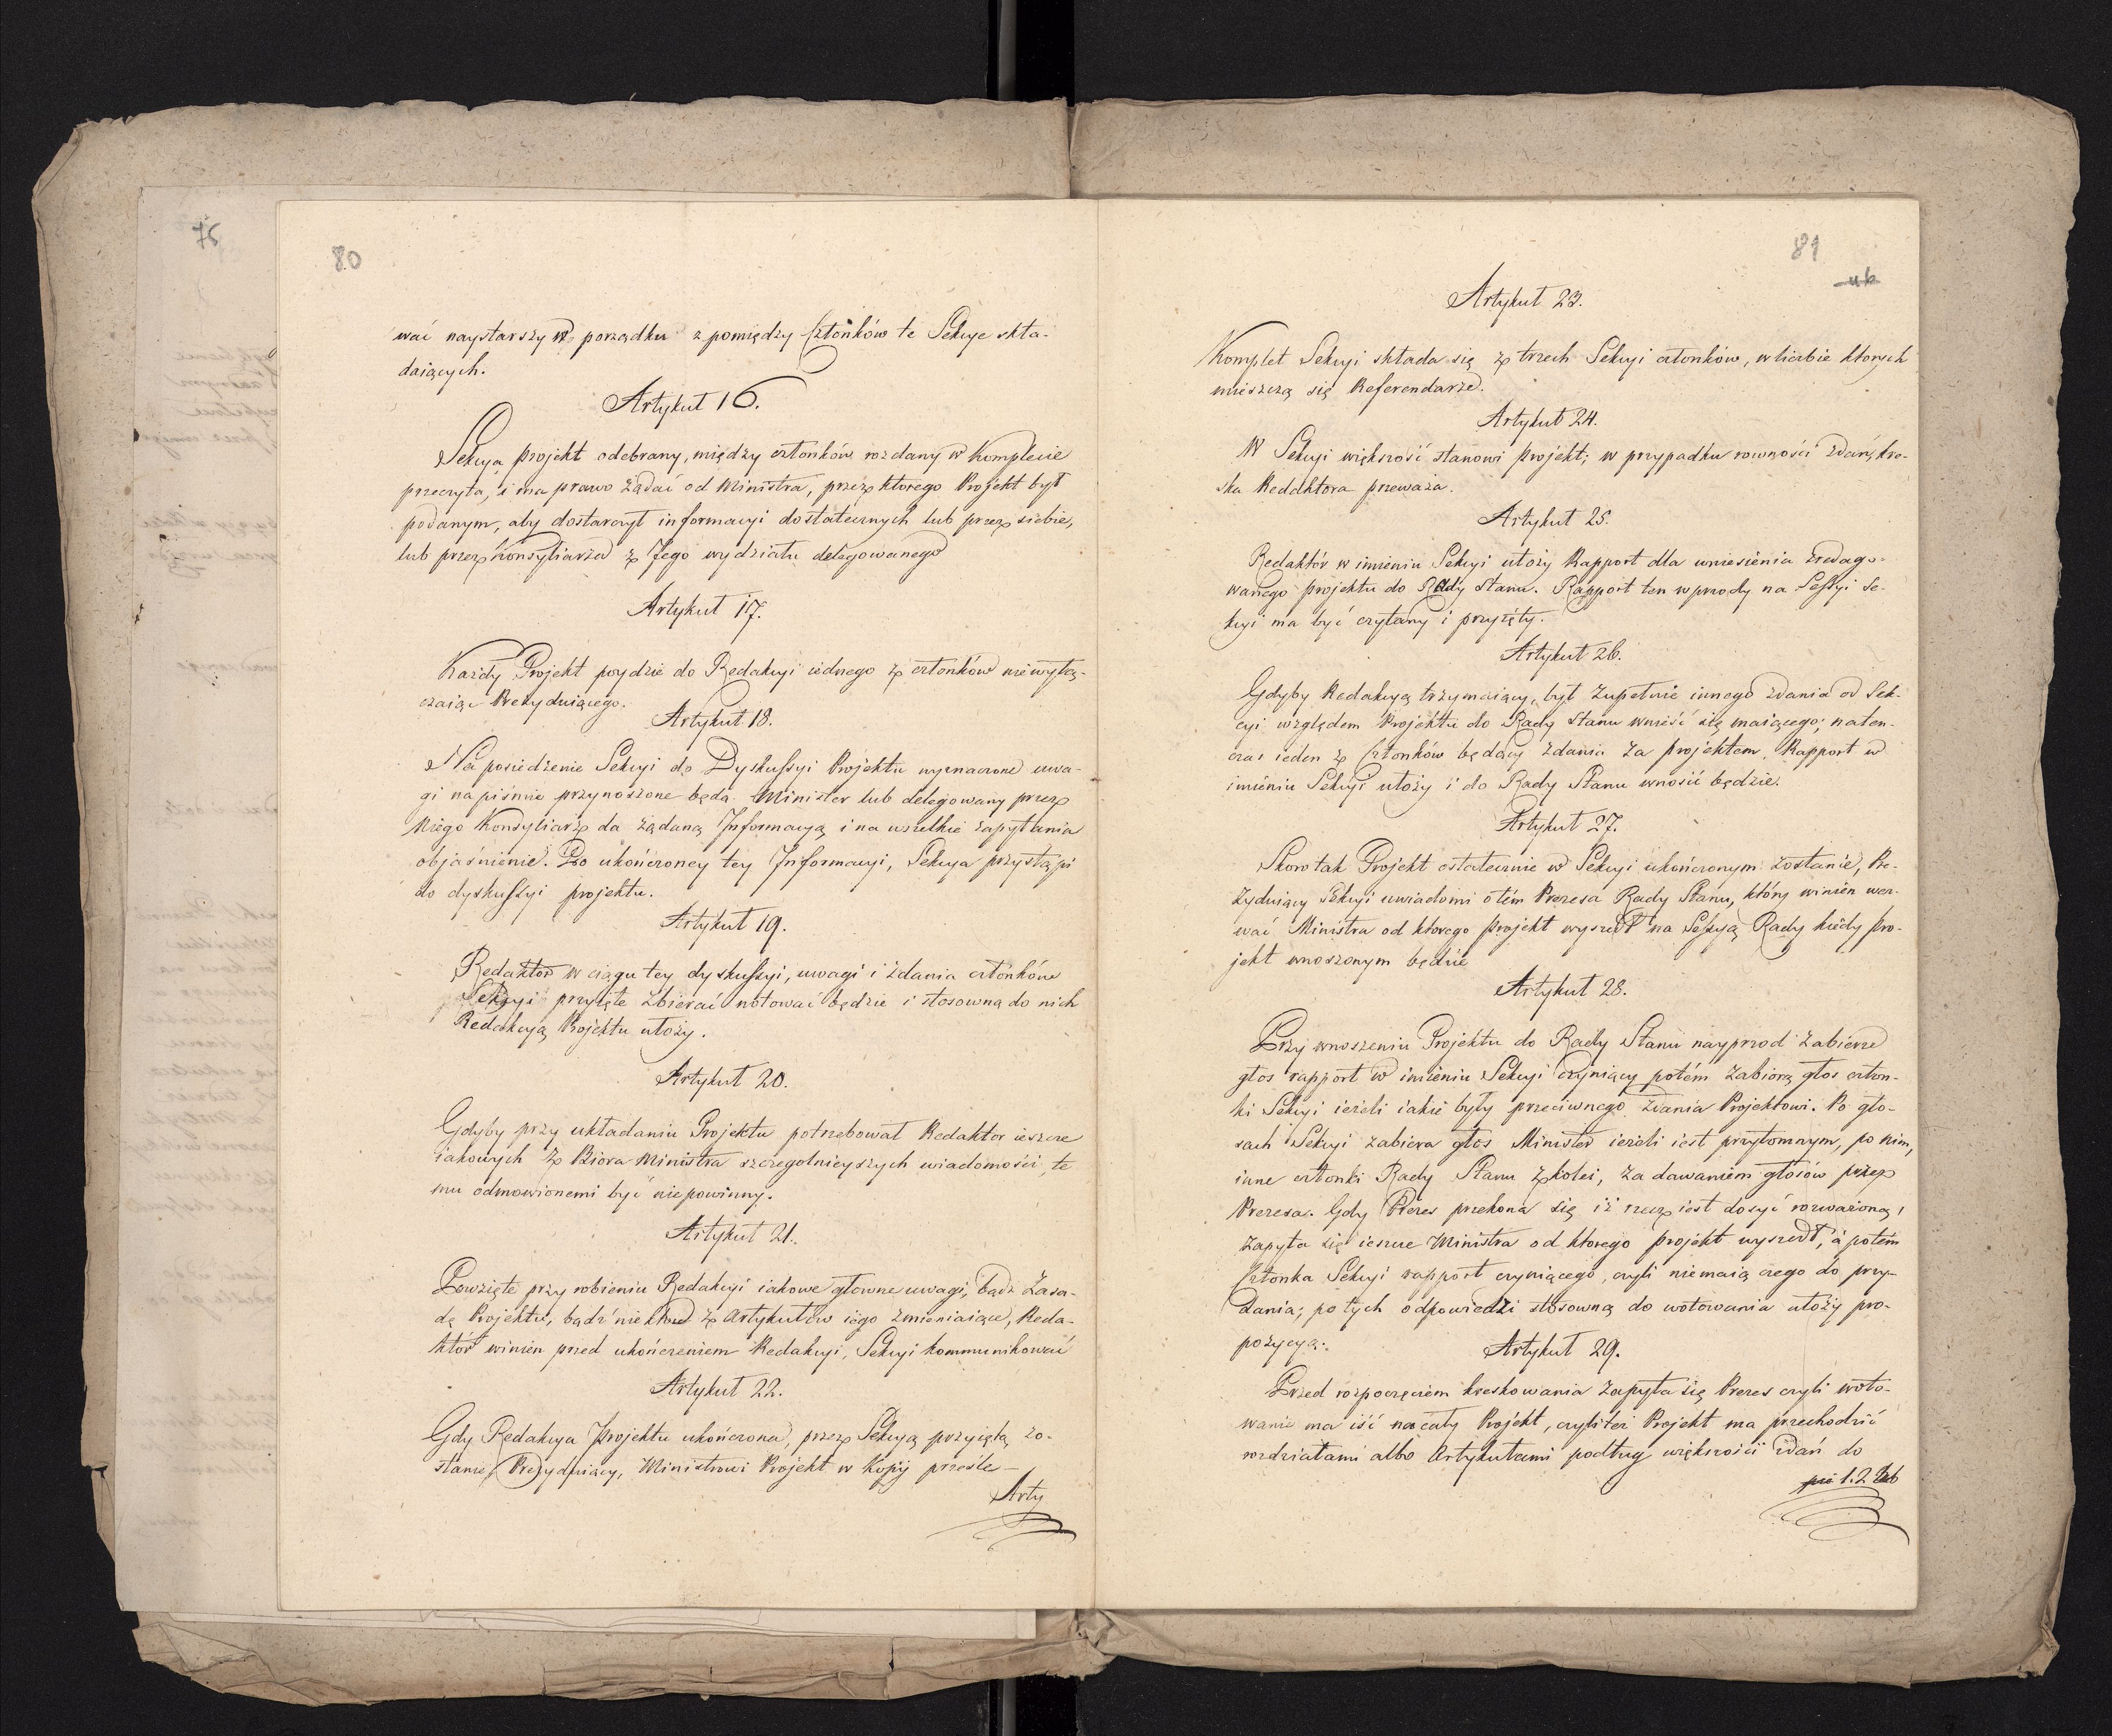 75
80
wać naystarszy w porządku z pomiędzy Członków te Sekcye skła-
daiących.
Artykuł 16.
Sekcya projekt odebrany, między członków rozdany w Komplecie
przeczyta, i ma prawo żądać od Ministra, przez ktorego Projekt był
podanym, aby dostarczył informacyi dostatecznych lub przez siebie,
lub przez Konsyliarza z Jego wydziału delegowanego
Artykuł 17.
Każdy Projekt poydzie do Redakcyi iednego z członków niewyłą-
czaiąc Prezyduiącego.
Artykuł 18.
Na posiedzenie Sekcyi do Dyskussyi Projektu wyznaczone uwa-
gi na piśmie przynoszone będą. Minister lub delegowany przez
Niego Konsyliarz da żądaną Informacyą i na wszelkie zapytania
objaśnienie. Po ukończoney tey Informacyi, Sekcya przystąpi
do dyskussyi projektu.
Artykuł 19.
Redaktor w ciągu tey dyskussyi, uwagi i zdania członków
Sekcyi przyięte zbierać notować będzie i stosowną do nich
Redakcyą Projektu ułoży.
Artykuł 20.
Gdyby przy układaniu Projektu potrzebował Redaktor ieszcze
iakowych z Biora Ministra szczegolnieyszych wiadomości, te
mu odmowionemi być niepowinny.
Artykuł 21.
Powzięte przy robieniu Redakcyi iakowe głowne uwagi, bądź Zasa-
dę Projektu, bądź niektore z Artykułów iego zmieniaiące, Reda-
któr winien przed ukończeniem Redakcyi, Sekcyi kommunikować
Artykuł 22.
Gdy Redakcya Projektu ukończona, przez Sekcyą przyiętą zo-
stanie, Prezyduiący, Ministrowi Projekt w Kopij prześle —
Arty
81
Artykuł 23.
Komplet Sekcyi składa się z trzech Sekcyi członków, w liczbie ktorych
mieszczą się Referendarze.
Artykuł 24.
W Sekcyi większość stanowi Projekt; w przypadku rowności zdań, kre-
ska Redaktora przeważa.
Artykuł 25.
Redaktór w imieniu Sekcyi ułoży Rapport dla wniesienia zredago-
wanego projektu do Rady Stanu. Rapport ten wprzody na Sessyi Se-
kcyi ma być czytany i przyięty.
Artykuł 26.
Gdyby Redakcyą trzymaiący, był zupełnie innego zdania od Sek-
cyi względem Projektu do Rady Stanu wnieść się maiącego; naten-
czas ieden z Członków będący zdania za projektem, Rapport w
imieniu Sekcyi ułoży i do Rady Stanu wnosić będzie.
Artykuł 27.
Skoro tak Projekt ostatecznie w Sekcyi ukończonym zostanie, Pre-
zyduiący Sekcyi uwiadomi o tém Prezesa Rady Stanu, który winien wez-
wać Ministra od ktorego Projekt wyszedł na Sessyą Rady kiedy Pro-
jekt wnoszonym będzie
Artykuł 28.
Przy wnoszeniu Projektu do Rady Stanu nayprzod zabierze
głos rapport w imieniu Sekcyi czyniący, potém zabiorą głos człon-
ki Sekcyi ieżeli iakie były przeciwnego zdania Projektowi. Po gło-
sach Sekcyi zabiera głos Minister ieżeli iest przytomnym, po nim,
inne członki Rady Stanu z kolei, za dawaniem głosów przez
Prezesa. Gdy Prezes przekona się iż rzecz iest dosyć rozważoną,
zapyta się ieszcze Ministra od ktorego projekt wyszedł, a potém
Członka Sekcyi rapport czyniącego, czyli niemaią czego do przy-
dania; po tych odpowiedzi stosowną do wotowania ułoży pro-
pozycyą.
Artykuł 29.
Przed rozpoczęciem kreskowania zapyta się Prezes czyli woto-
wanie ma iść na cały Projekt, czyli też Projekt ma przechodzić
rozdziałami albo Artykułami podług większości zdań do